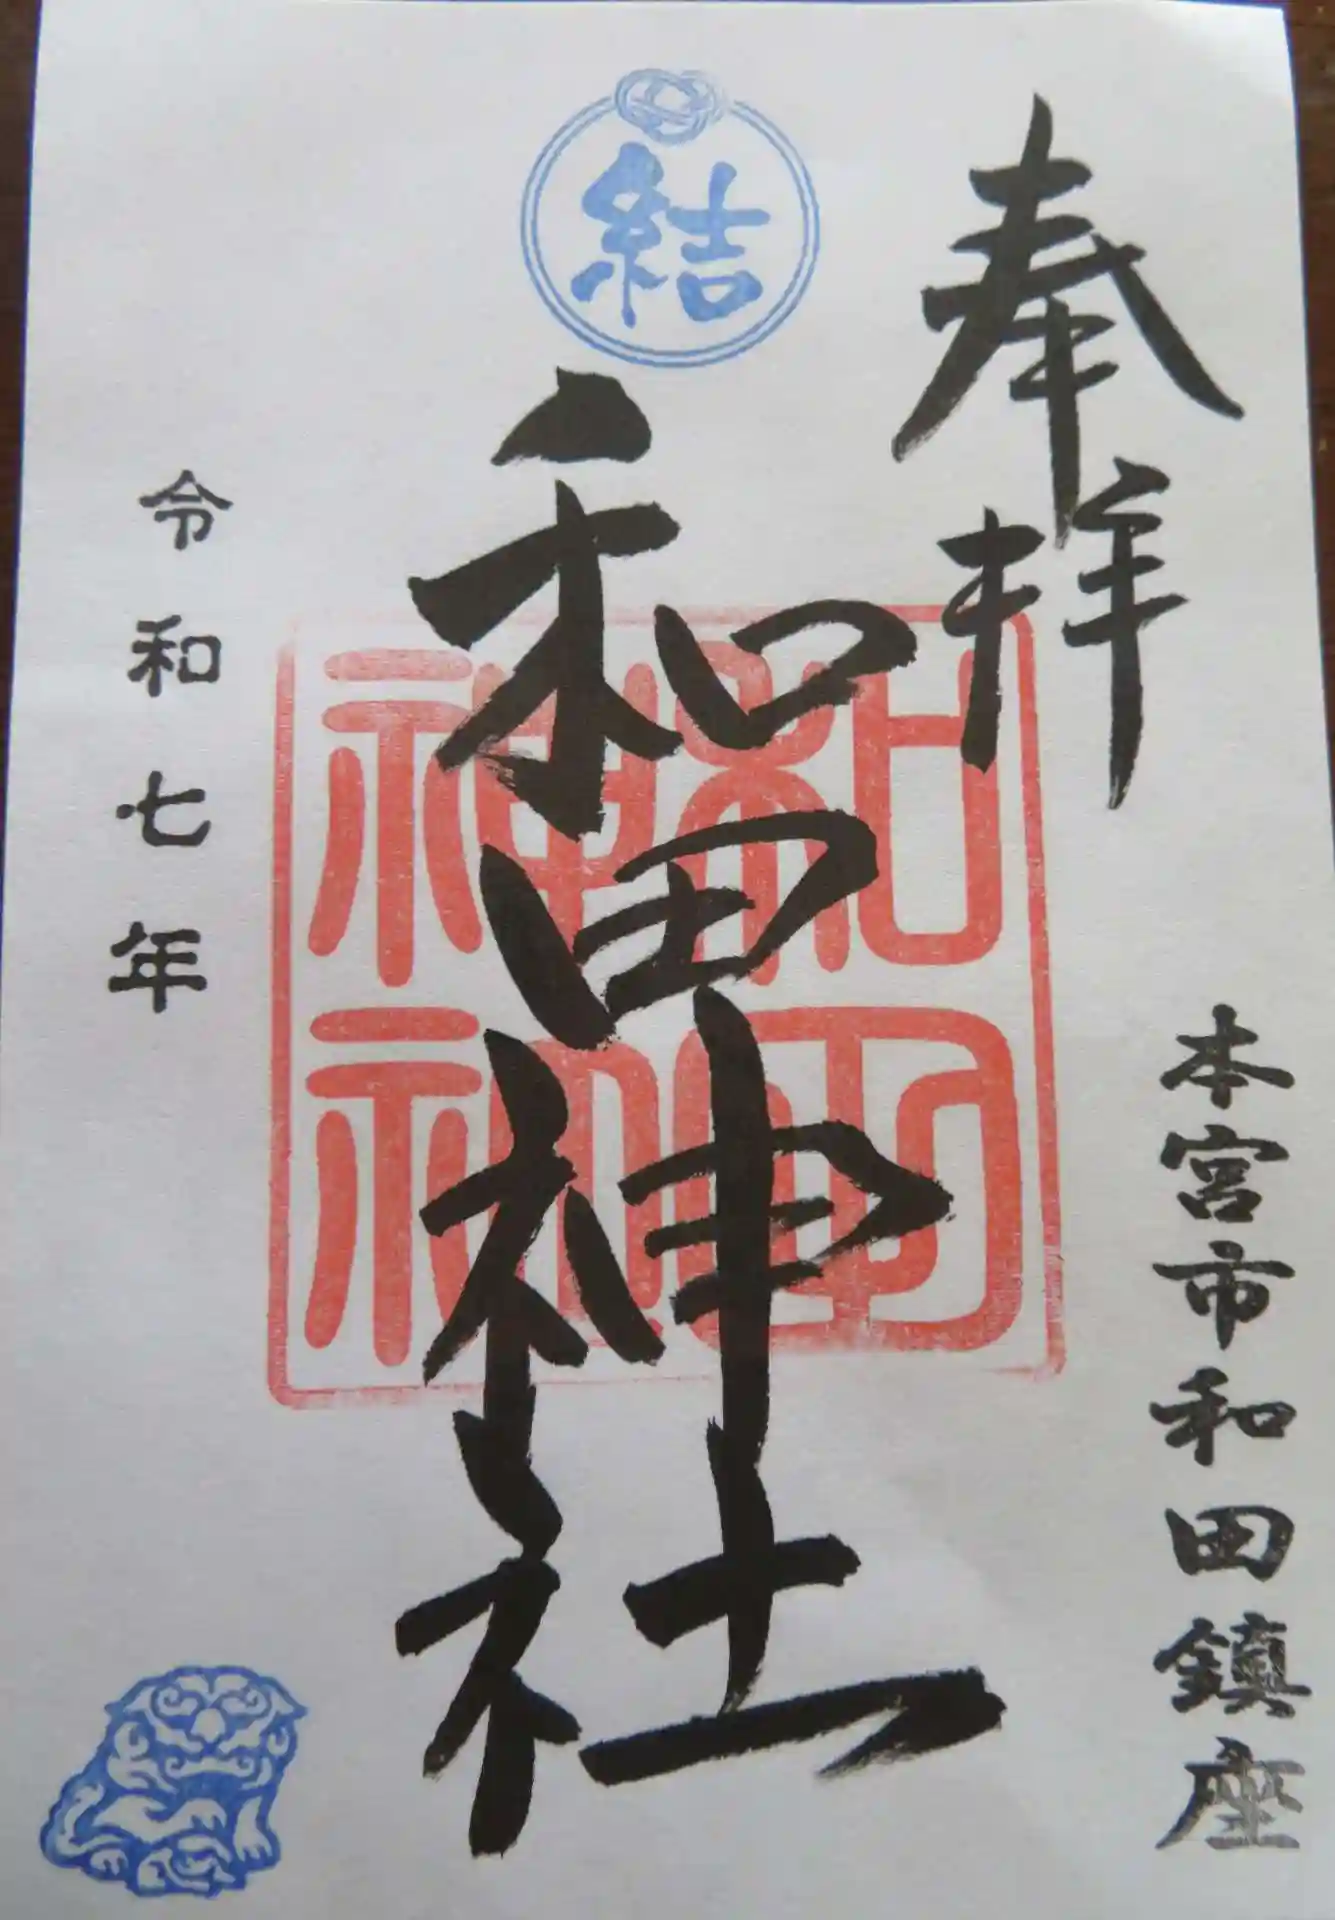 奉拝
本宮市和田鎮座
結
和田神社
和田
神社
令和七年